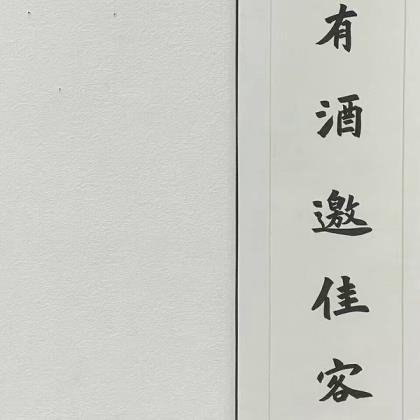 有酒邀佳客